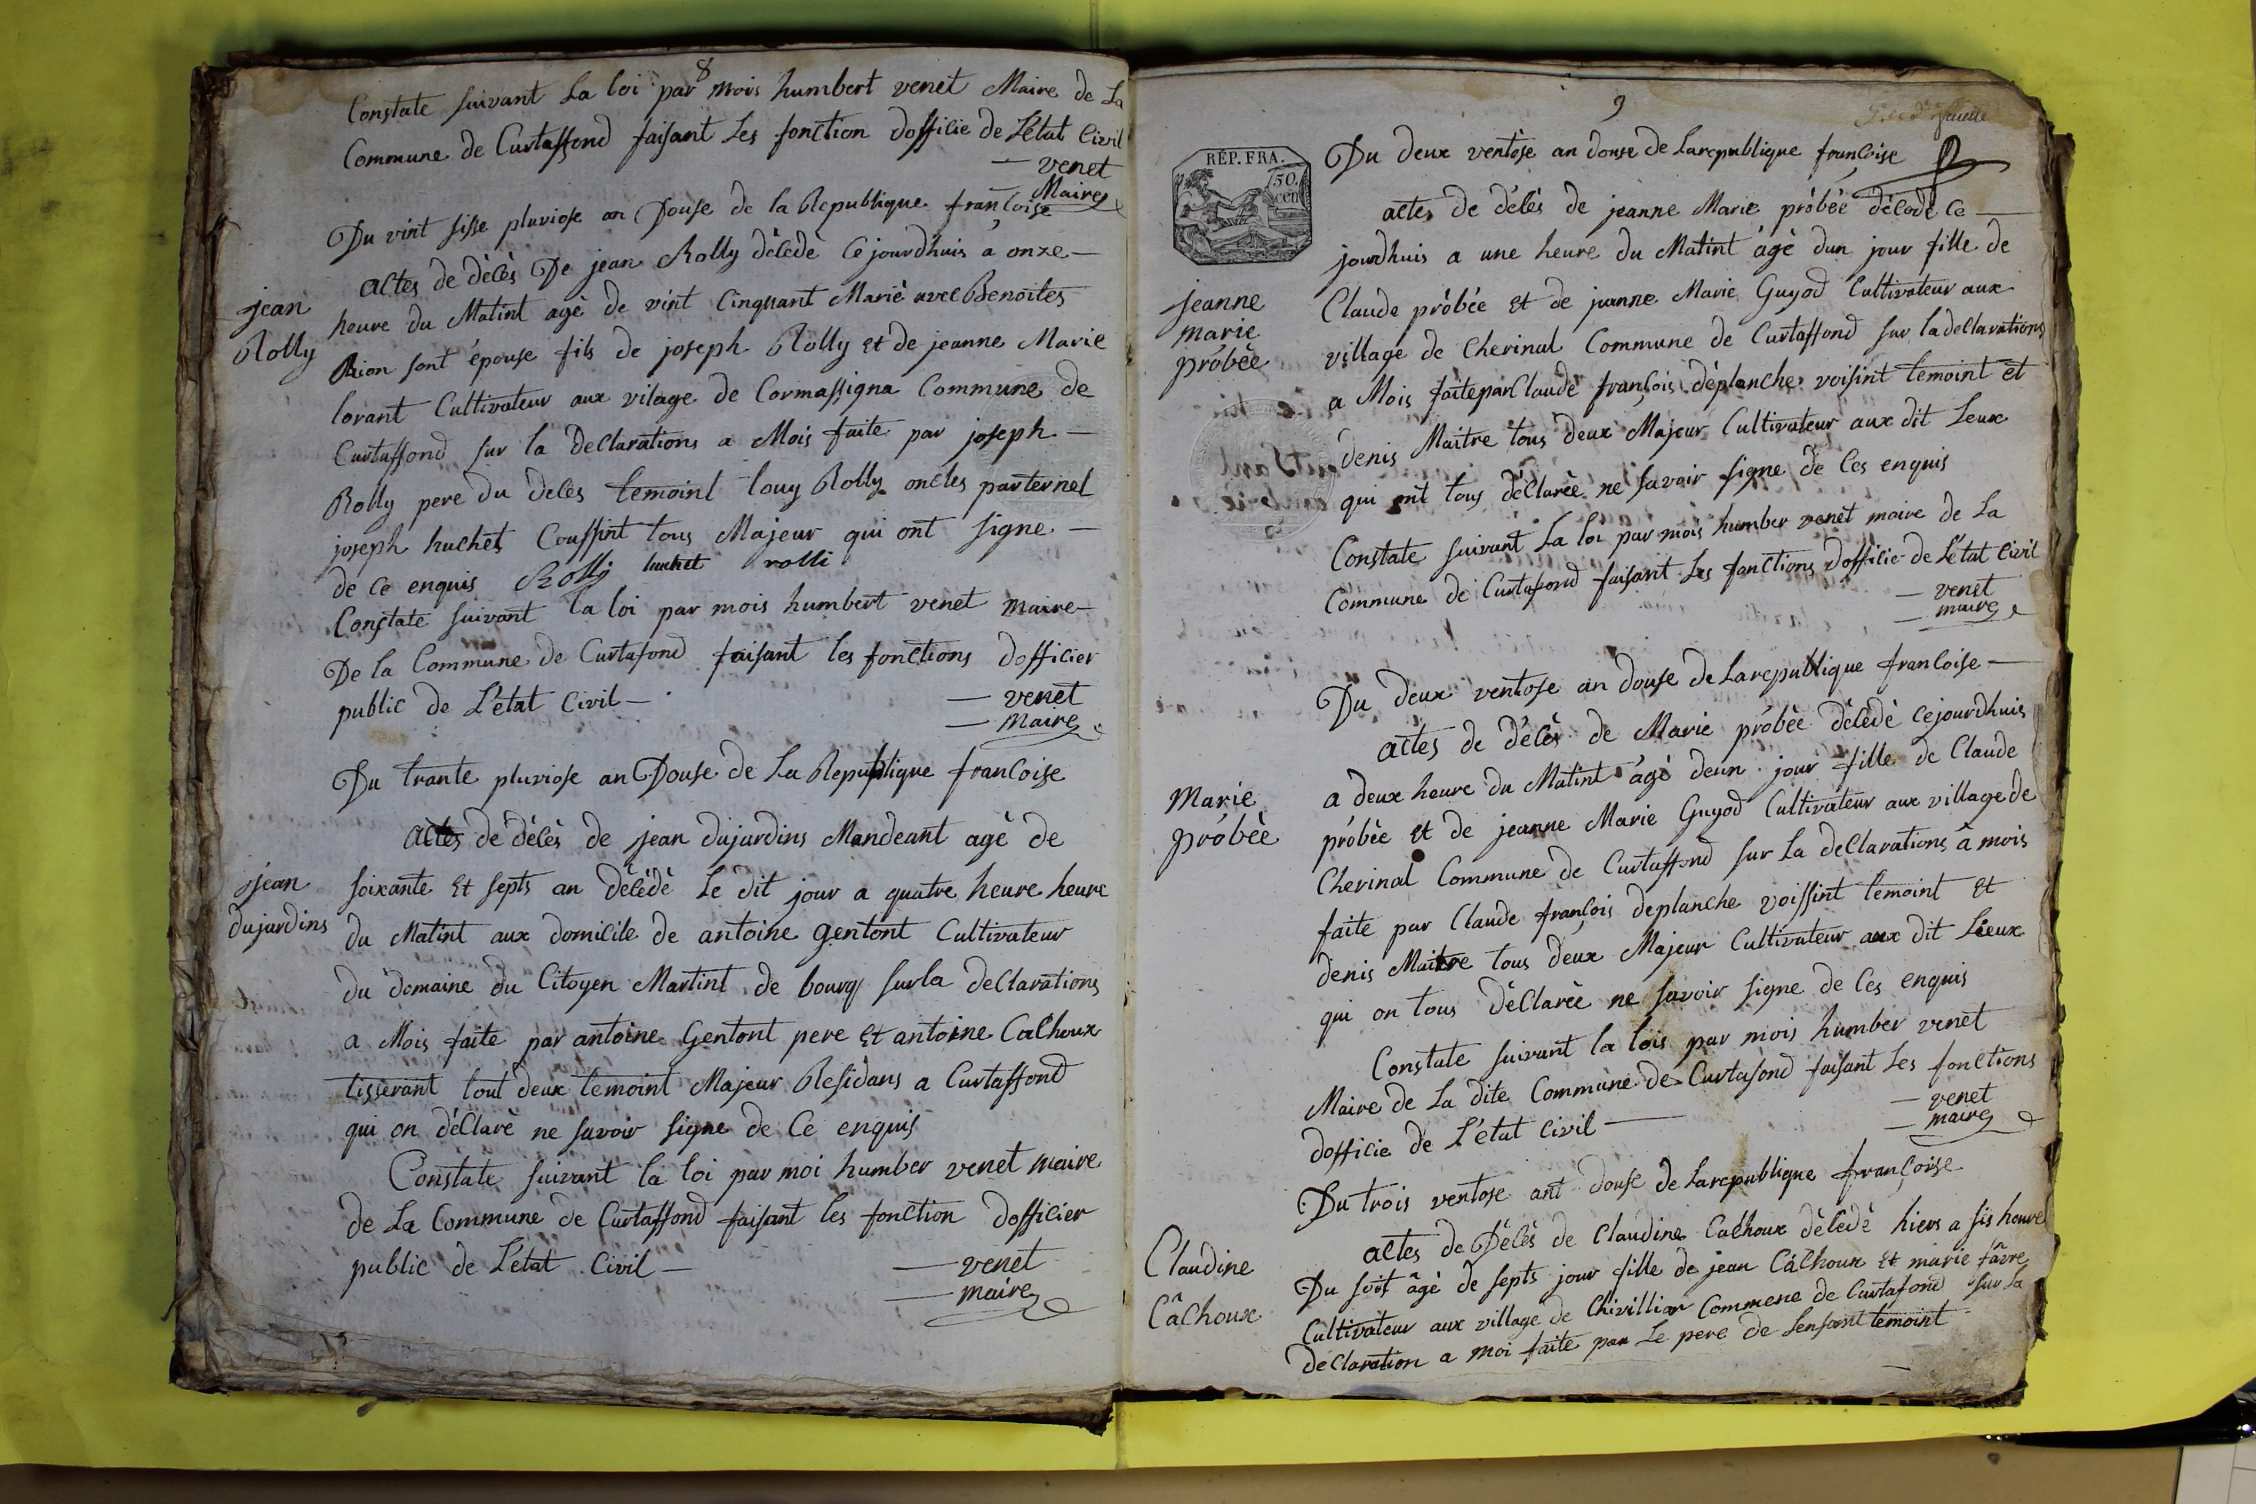 8
Constate suivant La loi par mois humbert venet Maire de La
Commune de Curtaffond faisant Les fonction dofficie de L'état Civil
venet
Maire
Du vint sisse pluviose an Douse de la Republique françoise
actes de dècès De jean Rolly dècedè Cejourdhuis a onze
jean
Rolly
heure du Matint agè de vint Cinquant Mariè avec Benoites
Rion sont épouse fils de joseph Rolly et de jeanne Marie
lorant Cultivateur aux vilage de Cormassigna Commune de
Curtaffond sur la declarations a Mois faite par joseph
Rolly pere du decès temoint louy Rolly oncles parternel
joseph huchet Coussint tous Majeur qui ont signe
de ce enquis Rolly huchet rolli
Constate suivant la loi par mois humbert venet maire
De la Commune de Curtafond faisant les fonctions dofficier
public de L'état Civil
venet
Maire
Du trante pluviose an Douse de La Republique francoise
Actes de dècès de jean dujardins Mandeant agè de
jean
dujardins
soixante et septs an dècèdè Le dit jour a quatre heure heure
du Matint aux domicile de antoine gentont Cultivateur
du domaine du Citoyen Martint de bourg sur la declarations
a Mois faite par antoine Gentont pere et antoine Calhoux
tisserant tout deux temoint Majeur Residans a Curtaffond
qui on dèclarè ne savoir signe de Ce enquis
Constate suivant la loi par moi humber venet maire
de La Commune de Curtaffond faisant les fonction dofficier
public de L'état Civil
venet
maire
9
RÉP. FRA.
50.
cen
Du deux ventose an douse de Larepublique francoise
actes de décès de jeanne Marie pròbèe dècedè Ce
jourdhuis a une heure du Matint àgè dun jour fille de
jeanne
marie
pròbèe
Claude pròbèe et de jeanne Marie Guyod Cultivateur aux
village de Cherinal Commune de Curtaffond sur la declarations
a Mois faite par Claude françois dèplanche voisint temoint et
denis Maitre tous deux Majeur Cultivateur aux dit Leux
qui ont tous dèclarèe ne savoir signe de Ces enquis
Constate suivant La loi par mois humber venet maire de La
Commune de Curtafond faisant Les fonctions dofficie de L'état Civil
venet
maire
Du deux ventose an douse de Larepublique francoise
actes de décès de Marie pròbèe dècedè cejourdhuis
Marie
pròbèe
a deux heure du Matint àgè deun jour fille de Claude
pròbèe et de jeanne Marie Guyod Cultivateur aux village de
Cherinal Commune de Curtaffond sur La declarations à mois
faite par Claude françois deplanche voissint temoint et
denis Maitre tous deux Majeur Cultivateur aux dit Lieux
qui on tous dèclarèe ne savoir signe de Ces enquis
Constate suivant la lois par mois humber venet
Maire de La dite Commune de Curtafond faisant Les fonctions
dofficie de L'état civil
venet
maire
Du trois ventose ant douse de Larepublique françoise
actes de Dècès de Claudine Calhoux dècèdè hiers a sis heure
Claudine
Câlhoux
Du soit âgè de septs jour fille de jean Câlhoux et marie fâvre
Cultivateur aux village de Chivilliar Commene de Curtafond sur La
declaration a moi faite par Le pere de Lenfant temoint